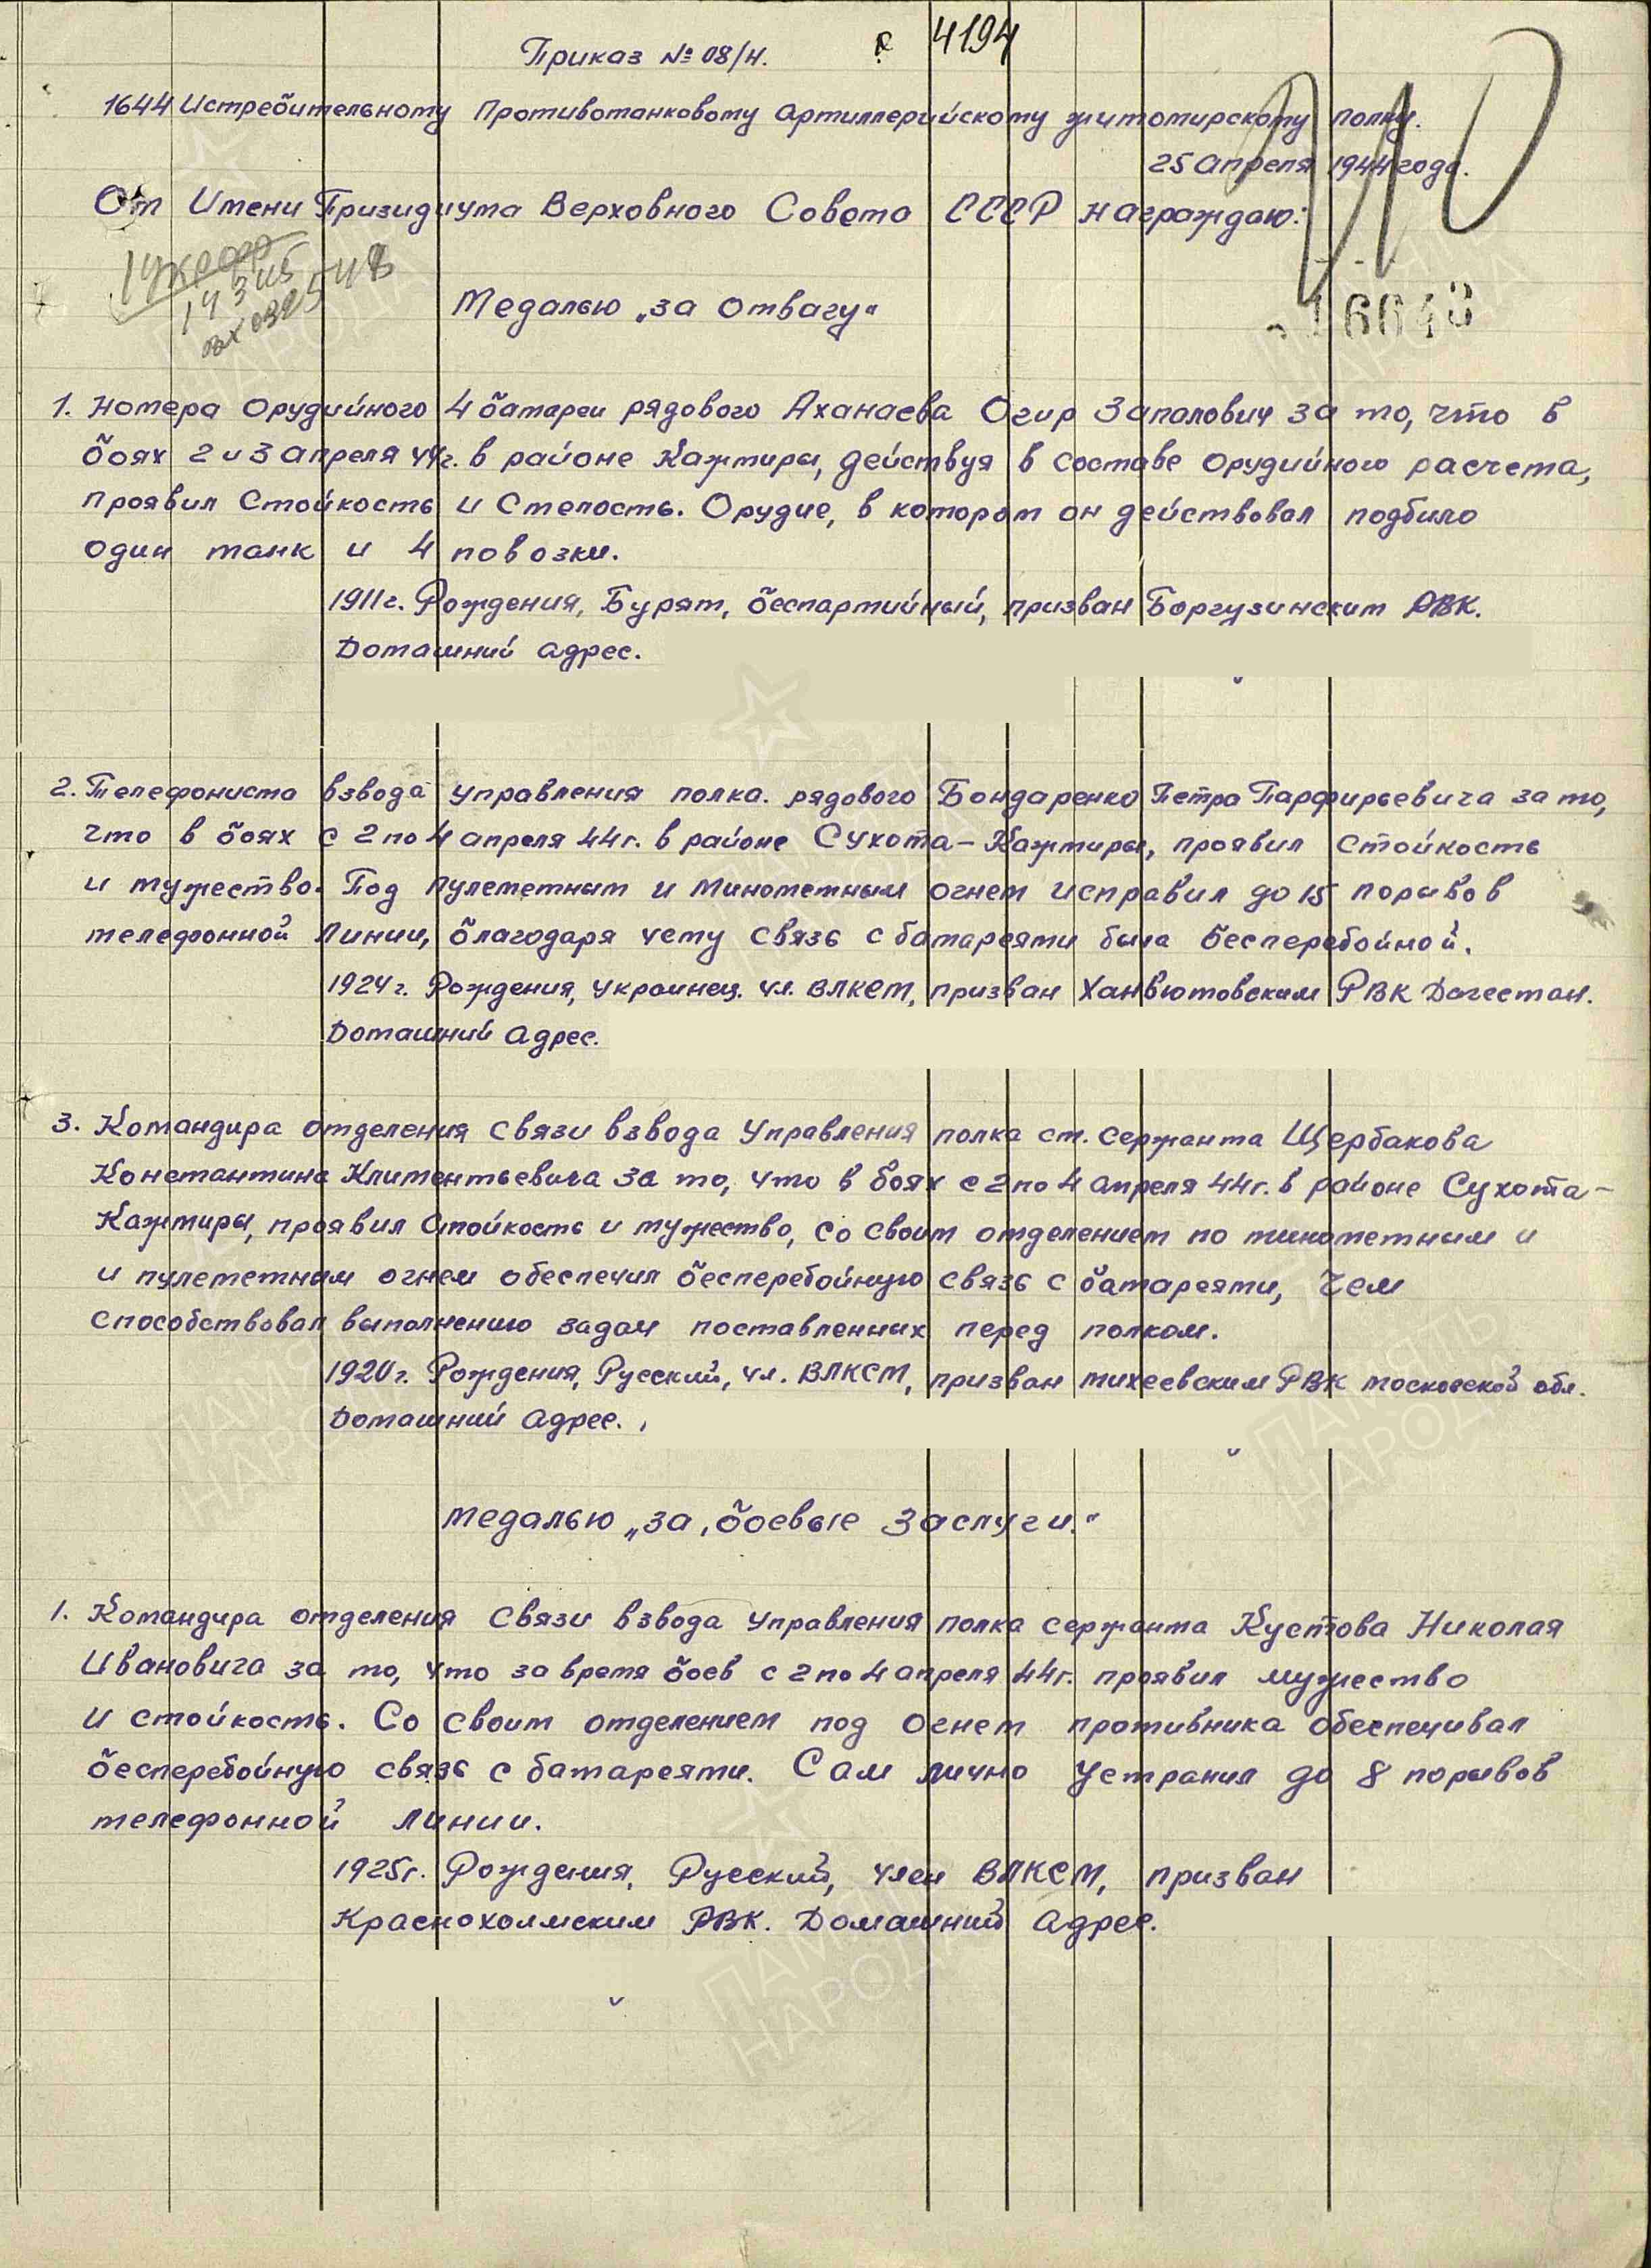 4194
Приказ № 08/Н.
1644 Истребительному Противотанковому Артиллерийскому житомирскому полку.
25 апреля 1944 года.
От Имени Призидиума Верховного Совета СССР награждаю:
14345
16643
Медалью „за Отвагу“
1. Номера Орудийного 4 батареи рядового Аханаева Огир Запалович за то, что в
боях 2 и 3 апреля 44г. в районе Кажмиры, действуя в составе орудийного расчета,
проявил Стойкость и Смелость. Орудие, в котором он действовал подбило
один танк и 4 повозки.
1911г. Рождения, Бурят, беспартийный, призван Боргузинским РВК.
Домашний адрес.
2. Телефониста взвода управления полка. рядового Бондаренко Петра Парфирьевича за то,
что в боях с 2 по 4 апреля 44г. в районе Сухота – Кажмиры, проявил стойкость
и мужество. Под пулеметным и минометным огнем исправил до 15 порывов
телефонной линии, благодаря чему связь с батареями была бесперебойной.
1924г. Рождения, украинец. чл. ВЛКСМ, призван Ханвютовским РВК Дагестан.
Домашний Адрес.
3. Командира отделения связи взвода Управления полка ст. сержанта Щербакова
Константина Климентьевича за то, что в боях с 2 по 4 апреля 44г. в районе Сухота –
Кажмиры, проявил стойкость и мужество, со своим отделением по минометным и
и пулеметным огнем обеспечил бесперебойную связь с батареями, чем
способствовал выполнению задач поставленных перед полком.
1920г. Рождения, Русский, чл. ВЛКСМ, призван михеевским РВК московской обл.
Домашний Адрес.
медалью „за боевые заслуги.“
1. Командира отделения связи взвода управления полка сержанта Кустова Николая
Ивановича за то, что за время боев с 2 по 4 апреля 44г. проявил мужество
и стойкость. Со своим отделением под огнем противника обеспечивал
бесперебойную связь с батареями. Сам лично устранил до 8 порывов
телефонной линии.
1925г. Рождения, Русский, член ВЛКСМ, призван
Краснохолмским РВК. Домашний Адрес.
ПАМЯТЬ
НАРОДА